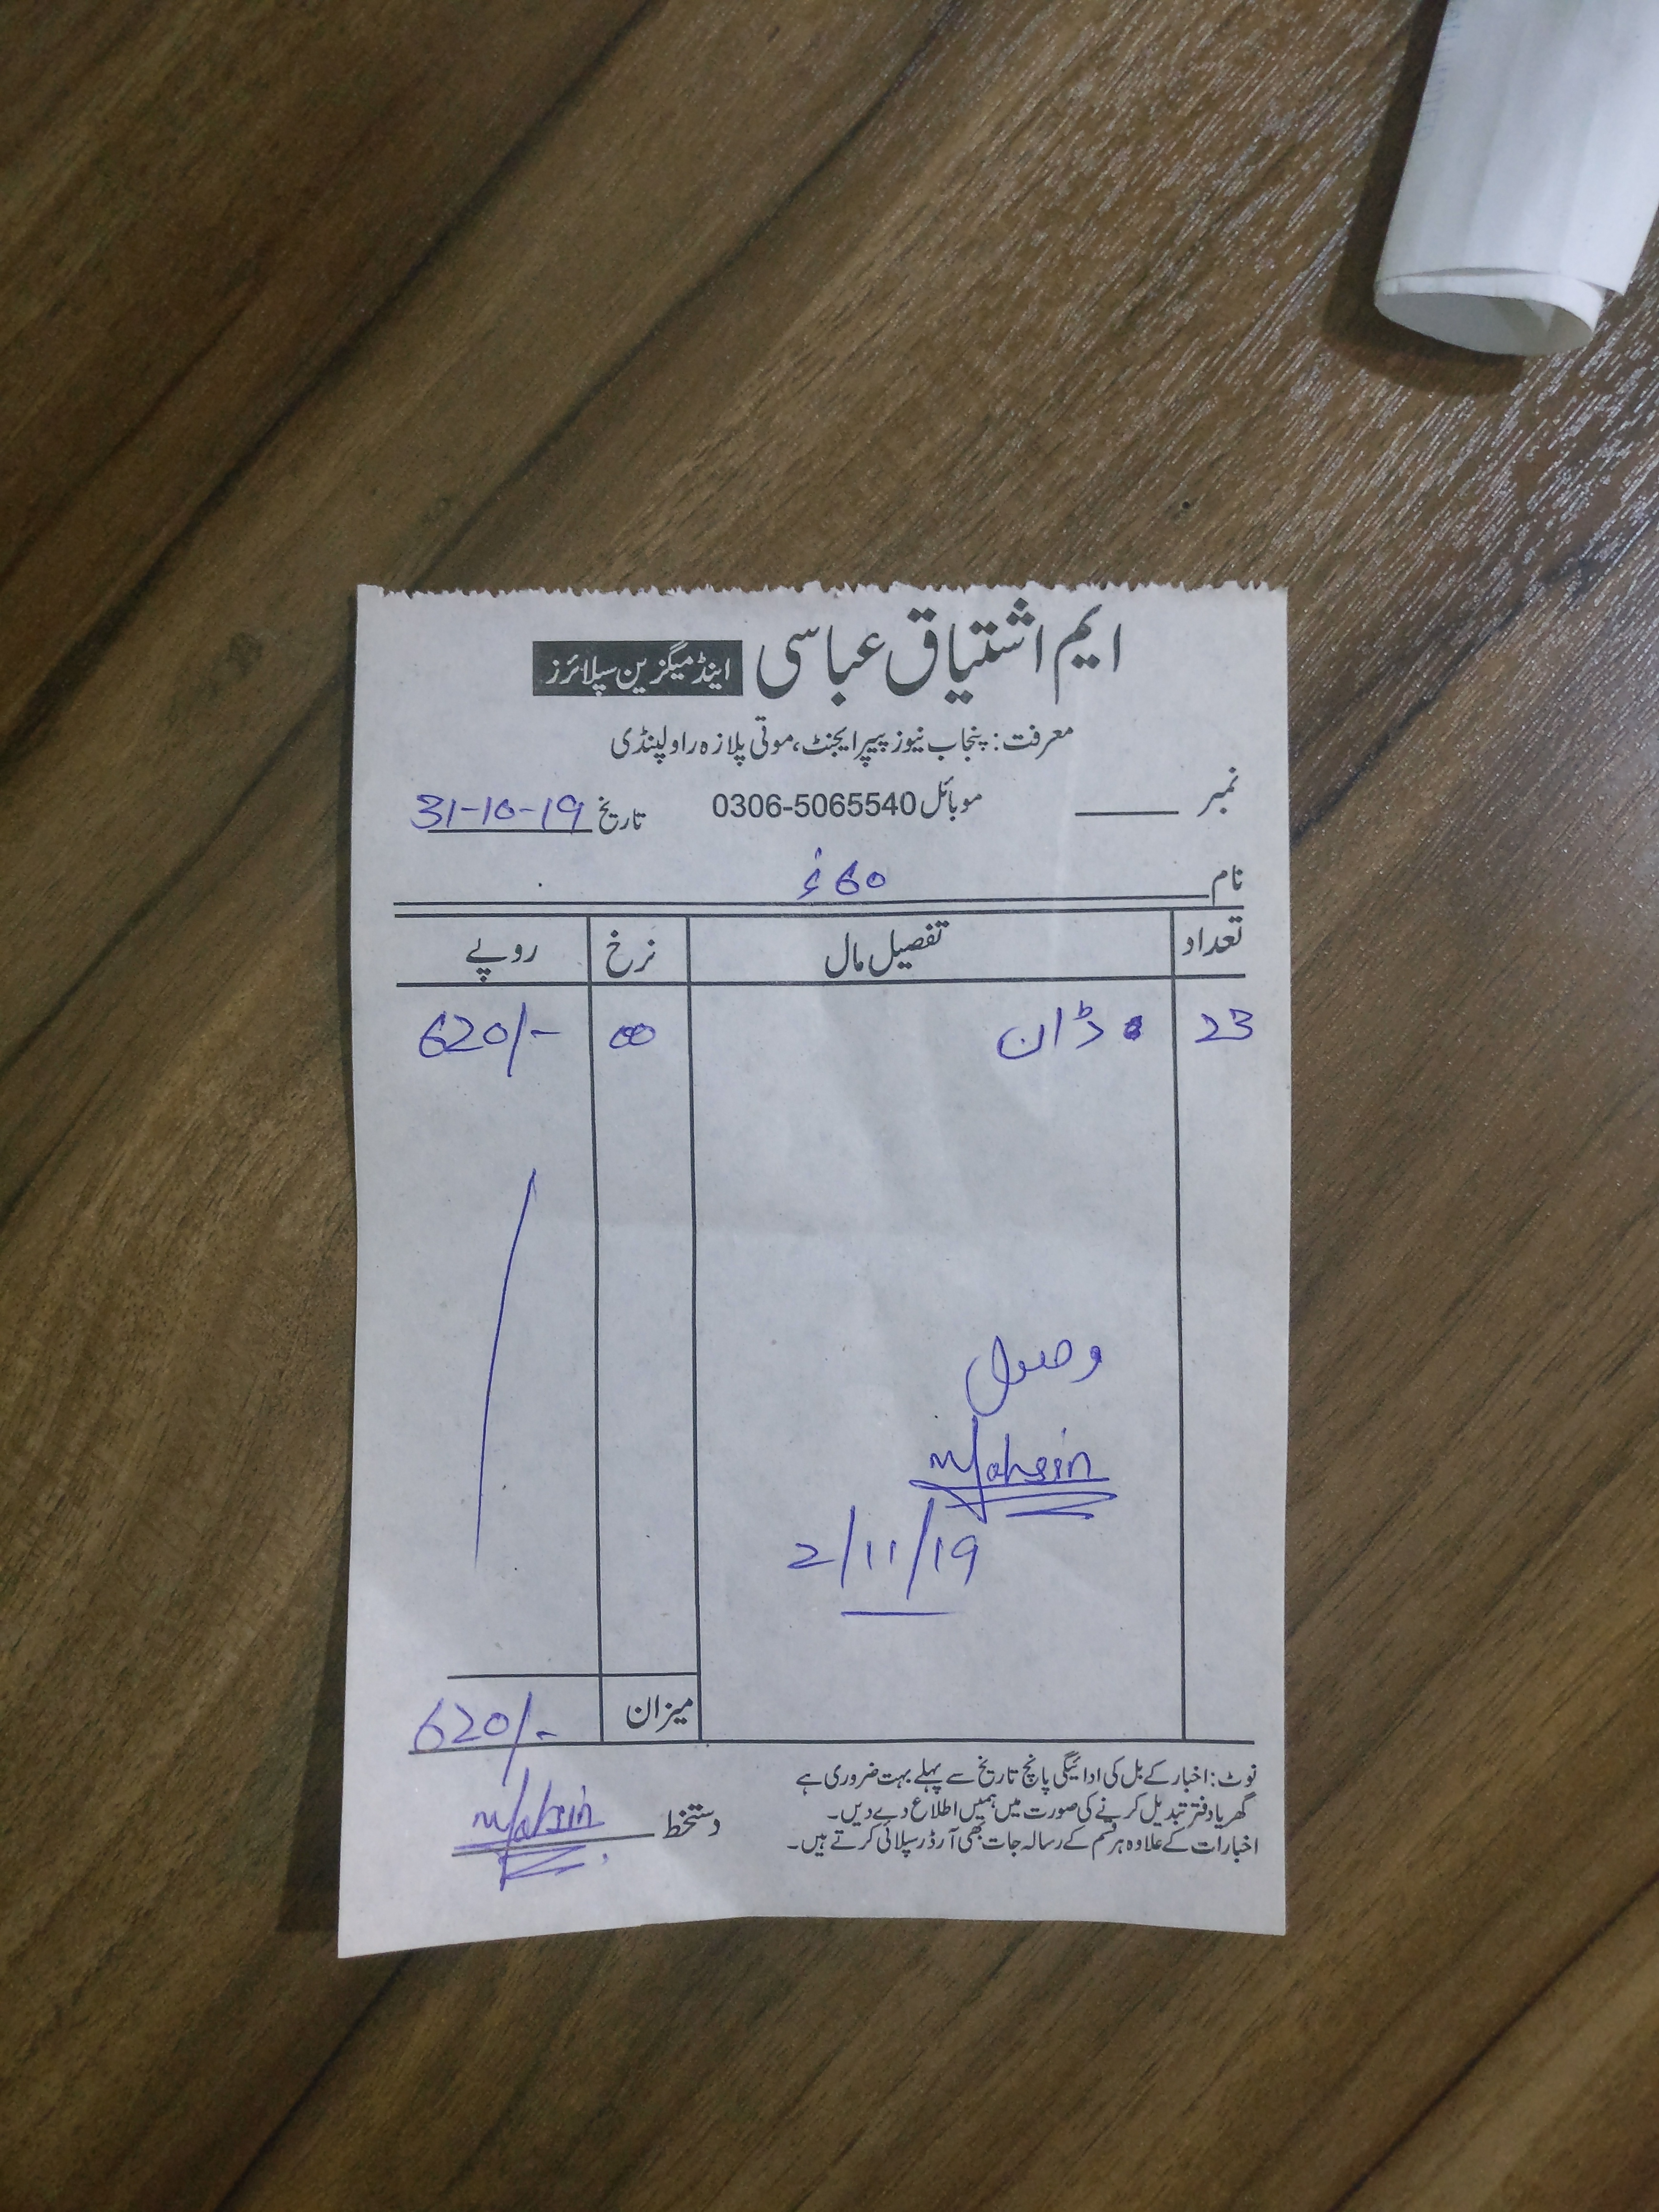 ایم اشتیاق عباسی اینڈ میگزین سپلائرز
معرفت: پنجاب نیوز پیپر ایجنٹ، موتی پلازہ راولپنڈی
نمبر موبائل 0306-5065540 تاریخ 31-10-19
نام 60
تعداد تفصیل مال نرخ روپے
23 ڈان 620/-
وصول
Mohsin
2/11/19
میزان 620/-
نوٹ: اخبار کے بل کی ادائیگی پانچ تاریخ سے پہلے بہت ضروری ہے
گھر یا دفتر تبدیل کرنے کی صورت میں ہمیں اطلاع دے دیں۔
اخبارات کے علاوہ ہر قسم کے رسالہ جات بھی آرڈر سپلائی کرتے ہیں۔
دستخط Mohsin